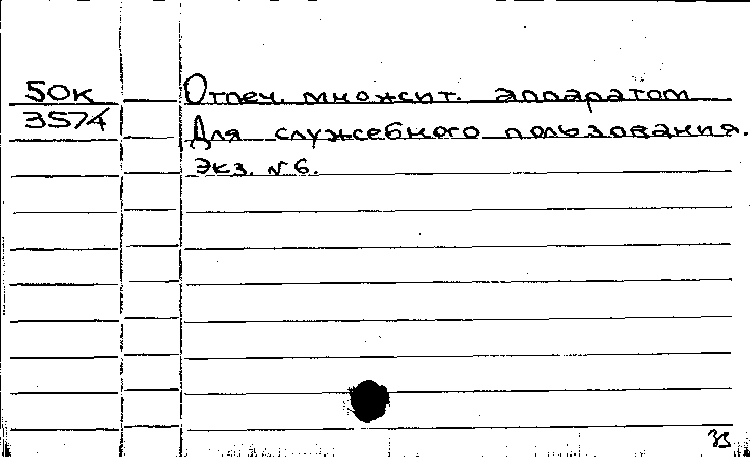 50К Отпеч. множит. аппаратом
3574 Для служебного пользования.
Экз. N 6.